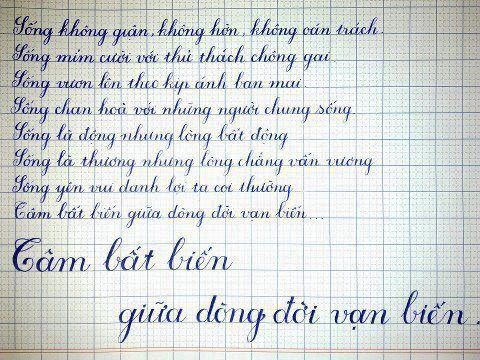 Sống không giận, không hờn, không oán trách.
Sống mỉm cười với thử thách chông gai
Sống vươn lên theo kịp ánh ban mai
Sống chan hoà với những người chung sống.
Sống là động nhưng lòng bất động
Sống là thương nhưng lòng chẳng vấn vương
Sống yên vui danh lợi ta coi thường
Tâm bất biến giữa dòng đời vạn biến...
Tâm bất biến
giữa dòng đời vạn biến.